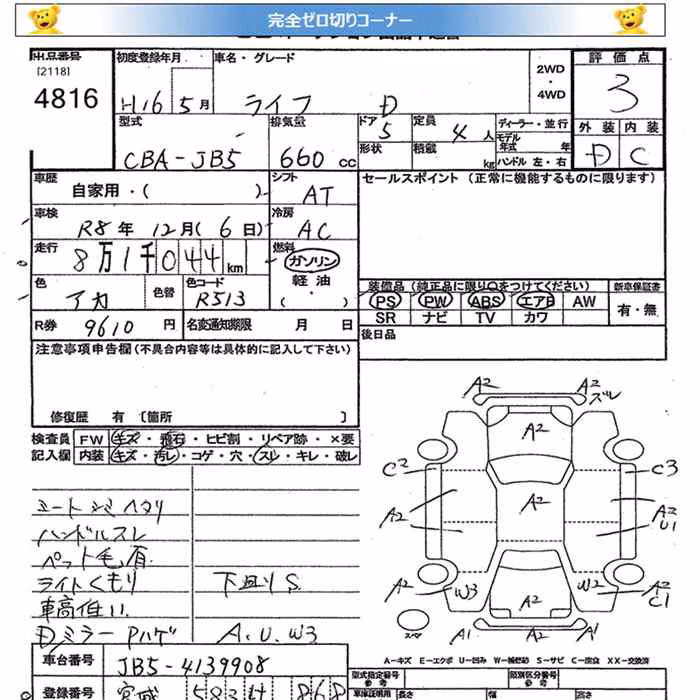 完全ゼロ切りコーナー
出品番号 初度登録年月 車名・グレード 2WD・4WD 評価点
[2118]
4816 H16年5月 ライフ D 3
型式 排気量 ドア 定員 ディーラー・並行 外装 内装
CBA-JB5 660cc 5 4人 モデル年式 年 D C
形状 積載 kg ハンドル 左・右
車歴 自家用・( ) シフト AT セールスポイント (正常に機能するものに限ります)
車検 R8年12月(6日) 冷房 AC
走行 8万1千044km 燃料 ガソリン 軽油・( )
色 アカ 色替 色コード R513 装備品(純正品に限り〇をつけてください) 新車保証書
PS PW ABS エアB AW 有・無
SR ナビ TV カワ
R券 9610円 名変通知期限 月 日 後日品
注意事項申告欄(不具合内容等は具体的に記入して下さい)
修復歴 有 [箇所 ]
検査員記入欄 FW キズ・飛石・ヒビ割・リペア跡・×要
内装 キズ・汚レ・コゲ・穴・スレ・キレ・破レ
シートシミヘタリ
ハンドルスレ
ペット毛有
ライトくもり 下廻りS
車高低い
Dミラー Pハゲ A.U.W3
A2 A2 ズレ
A2
C2 C3
A2 A2 A2 U1
A2 W3 W2 A2 C1
A1 A2 A2 A1
スペア
A-キズ E-エクボ U-凹み W-補修跡 S-サビ C-腐食 XX-交換済
車台番号 JB5-4139908 型式指定番号 参考 類別区分番号 参考
登録番号 宮城 583 868 車庫証明用 長さ 幅 高さ